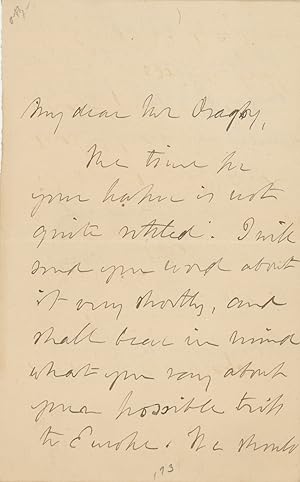 My dear Mr
The time for
your paper is not
quite settled. I will
send you word about
it very shortly, and
shall bear in mind
what you say about
your possible trip
to Europe. We should